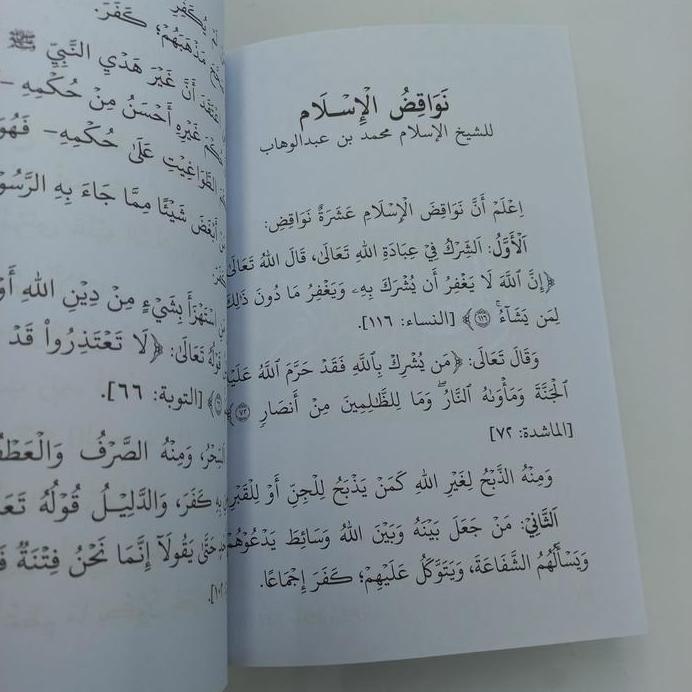 نَوَاقِضُ الْإِسْلَام
للشيخ الإسلام محمد بن عبدالوهاب
اِعْلَمْ أَنَّ نَوَاقِضَ الْإِسْلَامِ عَشَرَةُ نَوَاقِضِ:
اَلْأَوَّلُ: اَلشِّرْكُ فِيْ عِبَادَةِ اللهِ تَعَالَى، قَالَ اللهُ تَعَالَى
﴿إِنَّ ٱللَّهَ لَا يَغْفِرُ أَن يُشْرَكَ بِهِۦ وَيَغْفِرُ مَا دُونَ ذَٰلِكَ
لِمَن يَشَآءُۚ ۝١١٦﴾ [النساء: ١١٦].
وَقَالَ تَعَالَى: ﴿مَن يُشْرِكْ بِٱللَّهِ فَقَدْ حَرَّمَ ٱللَّهُ عَلَيْهِ
ٱلْجَنَّةَ وَمَأْوَىٰهُ ٱلنَّارُۖ وَمَا لِلظَّٰلِمِينَ مِنْ أَنصَارٍ ۝٧٢﴾
[المائدة: ٧٢]
وَمِنْهُ الذَّبْحُ لِغَيْرِ اللهِ كَمَنْ يَذْبَحُ لِلْجِنِّ أَوْ لِلْقَبْرِ
اَلثَّانِيْ: مَنْ جَعَلَ بَيْنَهُ وَبَيْنَ اللهُ وَسَائِطَ يَدْعُوْهُمْ
وَيَسْأَلُهُمُ الشَّفَاعَةَ، وَيَتَوَكَّلُ عَلَيْهِمْ؛ كَفَرَ إِجْمَاعًا.
يُكَفِّرِ
مَذْهَبَهُمْ؛ كَفَرَ.
أَنَّ غَيْرَ هَدْيِ النَّبِيِّ ﷺ
غَيْرِهِ أَحْسَنُ مِنْ حُكْمِهِ –
الطَّوَاغِيْتِ عَلَىٰ حُكْمِهِ– فَهُوَ
أَبْغَضَ شَيْئًا مِمَّا جَاءَ بِهِ الرَّسُوْ
اسْتَهْزَأَ بِشَيْءٍ مِنْ دِيْنِ اللهِ أَوْ
قَوْلُهُ تَعَالَىٰ: ﴿لَا تَعْتَذِرُوا۟ قَدْ
[التوبة: ٦٦].
اَلسِّحْرُ، وَمِنْهُ الصَّرْفُ وَالْعَطْفُ
بِهِ كَفَرَ، وَالدَّلِيْلُ قَوْلُهُ تَعَا
حَتَّىٰ يَقُولَآ إِنَّمَا نَحْنُ فِتْنَةٌ فَ